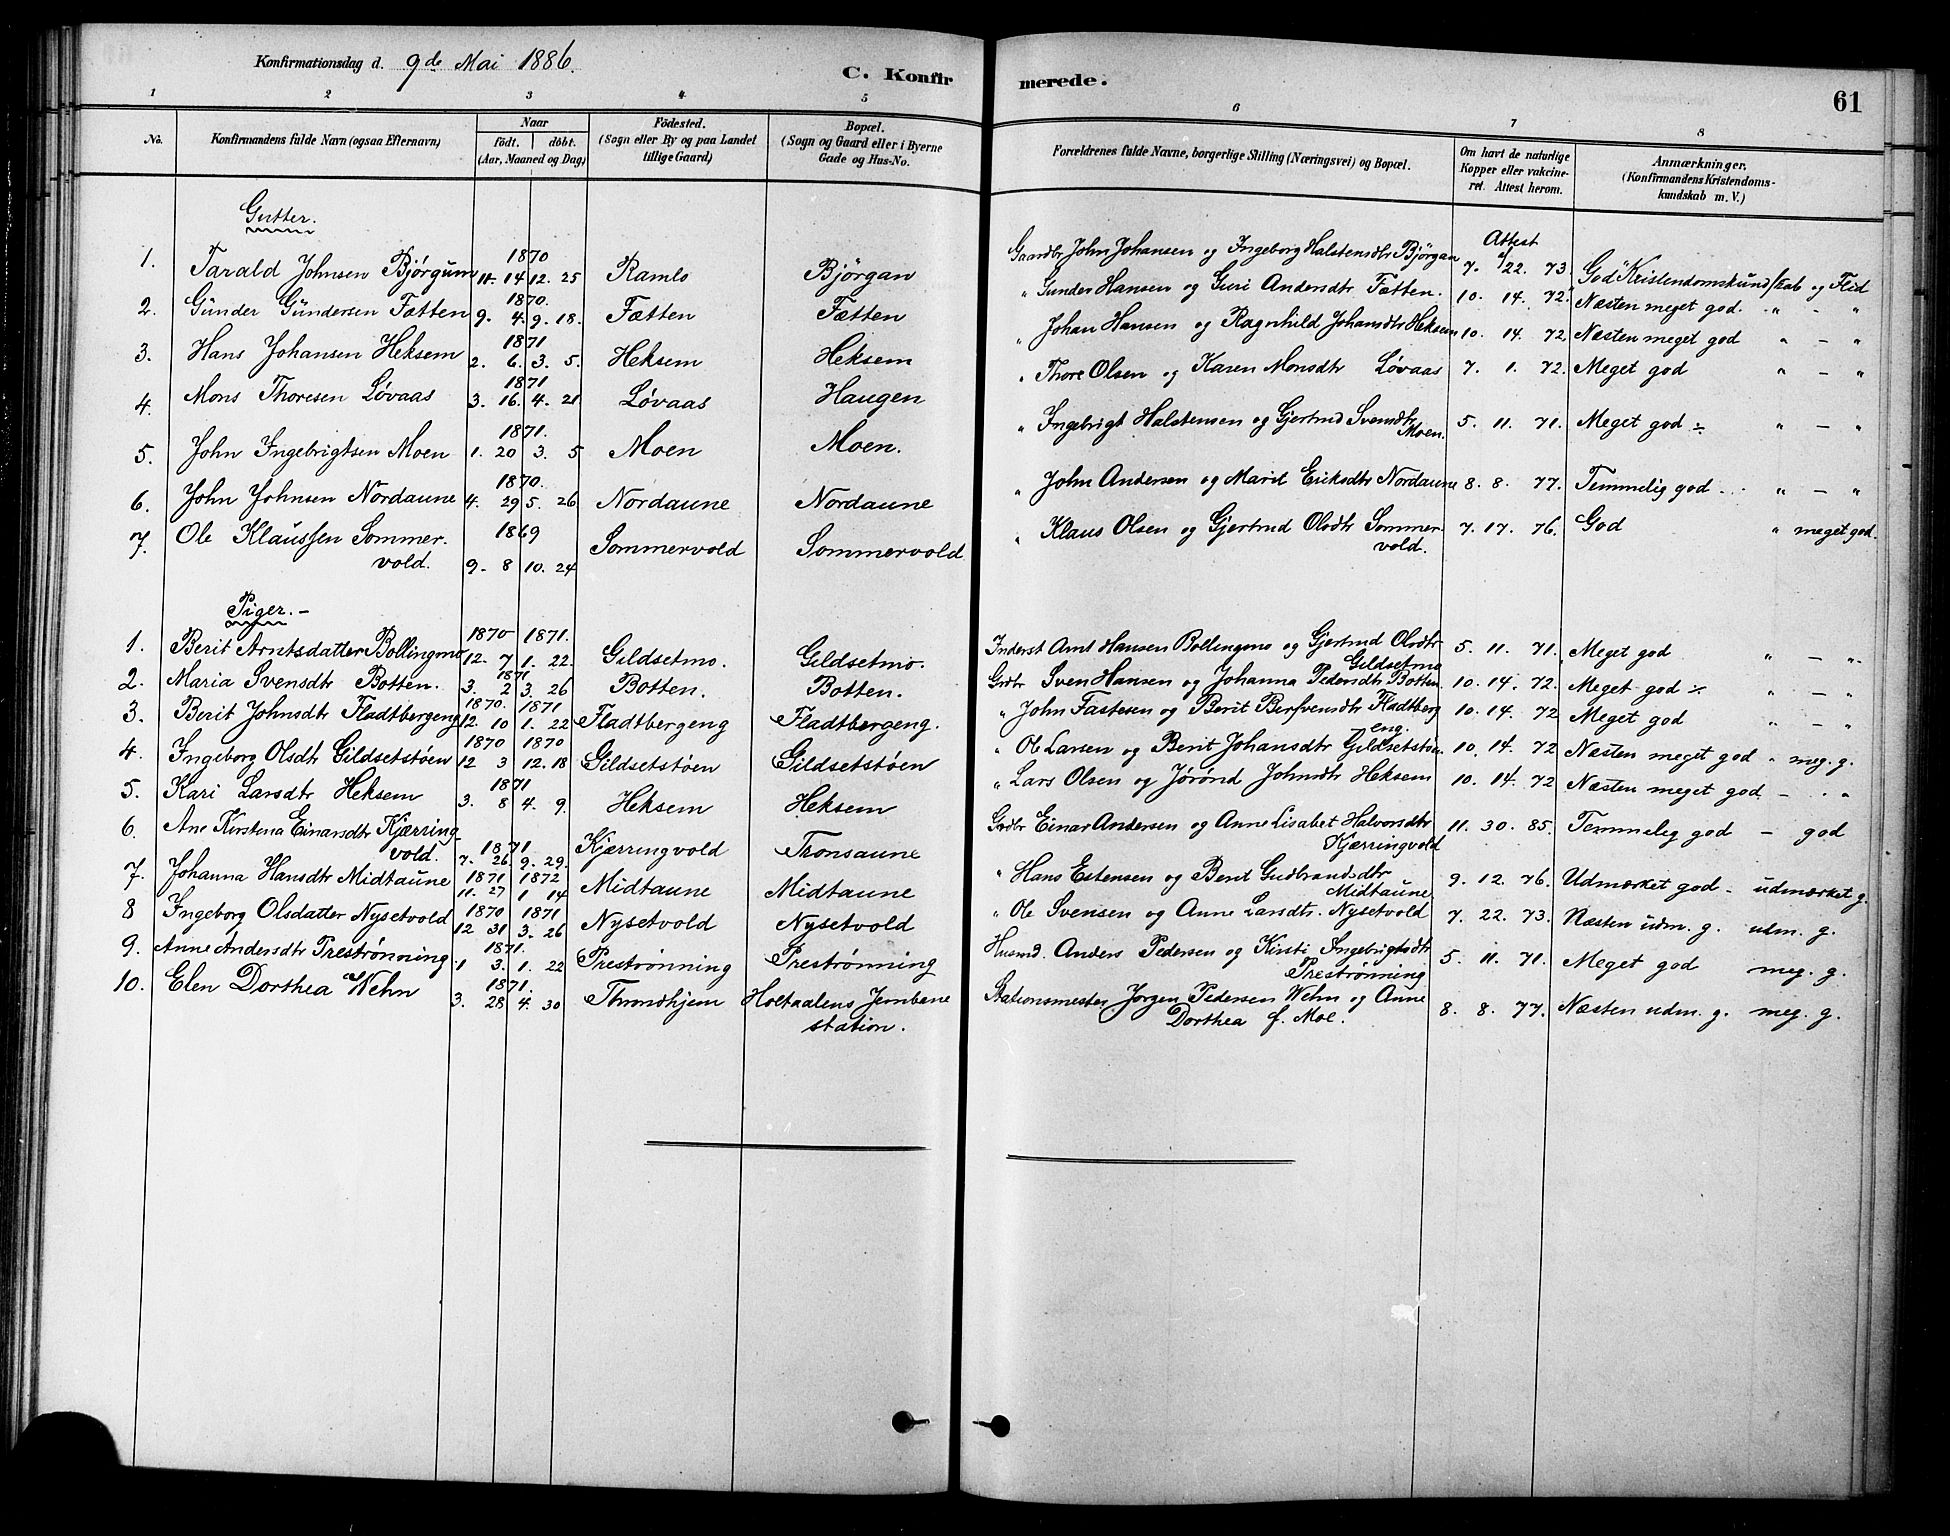 Konfirmationsdag d. 9de Mai 1886.
C. Konfirmerede.
61
1 2 3 4 5 6 7 8
No. Konfirmandens fulde Navn (ogsaa Efternavn) Naar født. døbt. (Aar, Maaned og Dag) Födested. (Sogn eller By og paa Landet tillige Gaard) Bopæl. (Sogn og Gaard eller i Byerne Gade og Hus-No. Forældrenes fulde Navne, borgerlige Stilling (Næringsvei) og Bopæl. Om havt de naturlige Kopper eller vakcineret. Attest herom. Anmærkninger. (Konfirmandens Kristendomskundskab m. V.)
Gutter.
Attest
1. Tarald Johnsen Bjørgum 1870 11. 14 12. 25 Ramlo Bjørgan Gaardbr John Johansen og Ingeborg Halstensdtr Bjørgan 7. 22. 73. God Kristendomskundskab og Flid
2. Gunder Gundersen Fætten 1870. 9. 4. 9. 18. Fætten Fætten " Gunder Hansen og Guri Andersdtr Fætten. 10. 14. 72. Næsten meget god. " - "
3. Hans Johansen Heksem 1871 2. 6. 3. 5. Heksem Heksem " Johan Hansen og Ragnhild Johansdtr Heksem 10. 14. 72 Næsten meget god " - "
4. Mons Thoresen Løvaas 1871 3. 16. 4. 21 Løvaas Haugen " Thore Olsen og Karen Monsdtr Løvaas 7. 1. 72. Meget god " - "
5. John Ingebrigtsen Moen 1871. 1. 20 3. 5 Moen Moen. " Ingebrigt Halstensen og Gjertrud Svendtr Moen. 5. 11. 71. Meget god ÷ " - "
6. John Johnsen Nordaune 1870. 4. 29 5. 26 Nordaune Nordaune " John Andersen og Marit Eriksdtr Nordaune 8. 8. 77. Temmelig god - " - "
7. Ole Klaussen Sommervold. 1869 9. 8 10. 24 Sommervold Sommervold " Klaus Olsen og Gjertrud Olsdtr Sommervold. 7. 17. 76. God " meget god.
Piger. -
1. Berit Arntsdatter Bollingmo 1870 1871. 12. 7 1. 22. Gildsetmo. Gildsetmo. Inderst Arnt Hansen Bollingmo og Gjertrud Olsdtr Gildsetmo 5. 11. 71. Meget god " - "
2. Maria Svensdtr Botten. 1871 3. 2 3. 26 Botten. Botten. Grdbr Sven Hansen og Johanna Pedersdtr Botten 10. 14. 72. Meget god ÷ " - "
3. Berit Johnsdtr Fladtbergeng 1870. 1871 12 10 1. 22 Fladtbergeng Fladtbergeng. " John Fastesen og Berit Bersvensdtr Fladtbergeng. 10. 14. 72 Meget god " - "
4. Ingeborg Olsdtr Gildsetstøen 1870 1870 12 3 12. 18 Gildsetstøen Gildsetstøen " Ole Larsen og Berit Johansdtr Gildsetstøen 10. 14. 72 Næsten meget god " meg. g.
5. Kari Larsdtr Heksem 1871 3. 8 4. 9. Heksem Heksem " Lars Olsen og Jørønd Johnsdtr Heksem 10. 14. 72 Næsten meget god. - "
6. Ane Kirstena Einarsdtr Kjærringvold. 1871 7. 26 9. 29. Kjærringvold Tronsaune Grdbr Einar Andersen og Anne Lisabet Halvorsdtr Kjærringvold 11. 30. 85. Temmelig god - god
7. Johanna Hansdtr Midtaune 1871 1872 11. 27 1 14 Midtaune Midtaune " Hans Estensen og Berit Gudbrandsdtr Midtaune 9. 12. 76. Udmærket god - udmærket g.
8 Ingeborg Olsdatter Nysetvold 1870 1871 12 31 3. 26 Nysetvold Nysetvold " Ole Svensen og Anne Larsdtr. Nysetvold 7. 22. 73. Næsten udm. g. udm. g.
9. Anne Andersdtr Prestrønning 1871. 1 3. 1. 22 Prestrønning Prestrønning Husmd. Anders Pedersen og Kirsti Ingebrigtsdtr Prestrønning 5. 11. 71. Meget god meg. g.
10. Elen Dorthea Wehn 1871. 3. 28 4. 30 Throndhjem Holtaalens Jernbanestation. Stationsmester Jørgen Pedersen Wehn og Anne Dorthea f. Moe. 8. 8. 77. Næsten udm. g. meg. g.